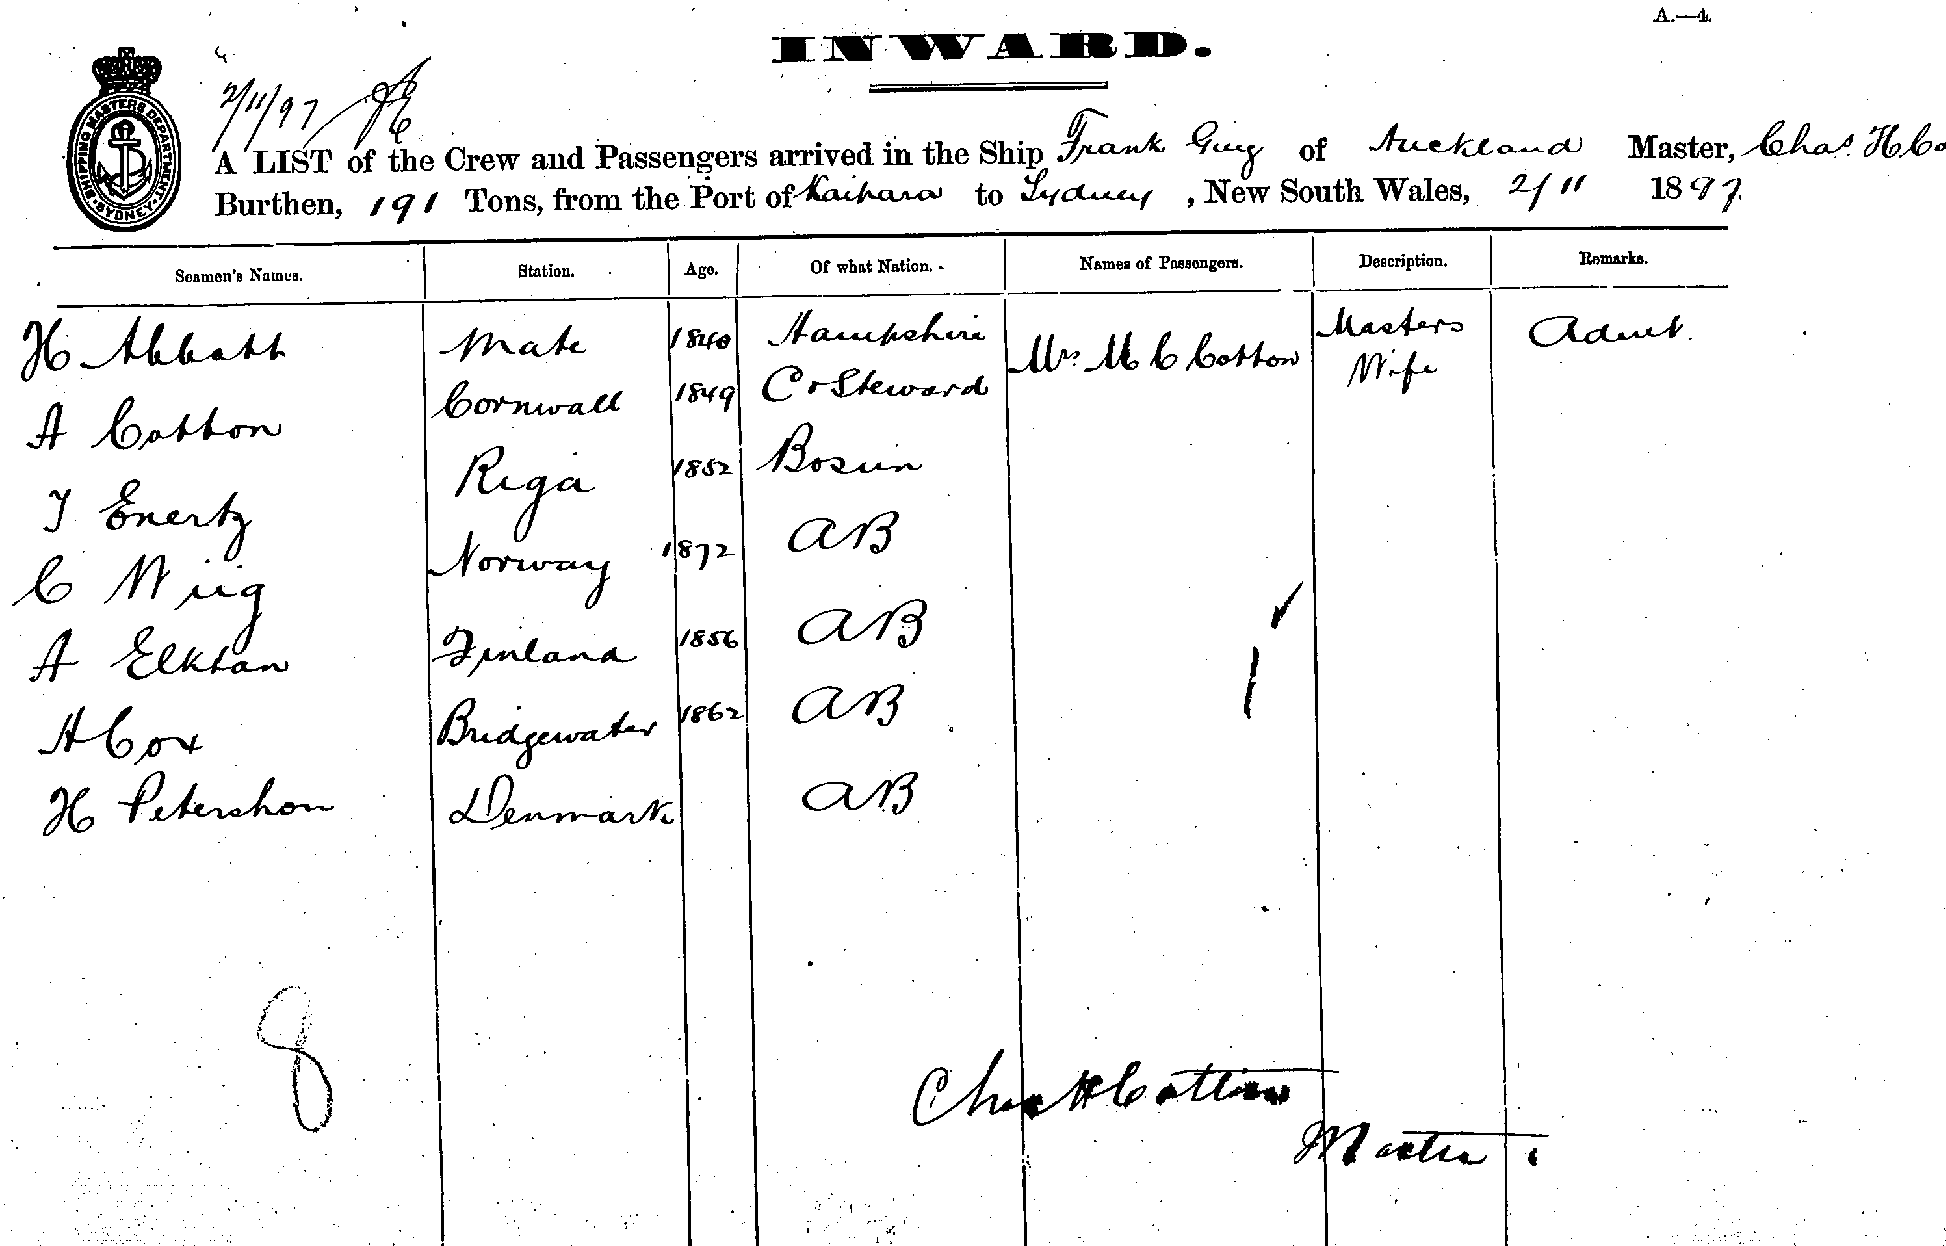 A.—4.
INWARD.
SHIPPING MASTERS DEPARTMENT SYDNEY
2/11/97
A LIST of the Crew and Passengers arrived in the Ship Frank Guy of Auckland Master, Chas. H Co
Burthen, 191 Tons, from the Port of Kaipara to Sydney, New South Wales, 2/11 1897.
Seamen's Names. Station. Age. Of what Nation. Names of Passengers. Description. Remarks.
H Abbott Mate 1840 Hampshire Mrs M C Cotton Masters Wife Adult.
A Cotton Cornwall 1849 C & Steward
J Enertz Riga 1852 Bosun
C Wiig Norway 1872 AB
A Elktan Finland 1856 AB
H Cox Bridgewater 1862 AB
H Petershon Denmark AB
8
1
Chas H Cotton
Master